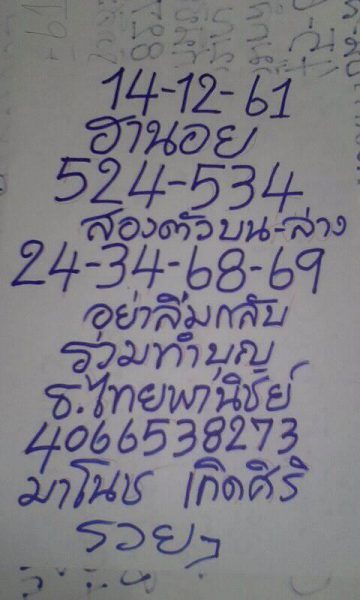 14-12-61
ฮานอย
524-534
สองตัวบน-ล่าง
24-34-68-69
อย่าลืมกลับ
ร่วมทำบุญ
ธ.ไทยพานิชย์
4066538273
มาโนช เกิดศิริ
รวยๆ